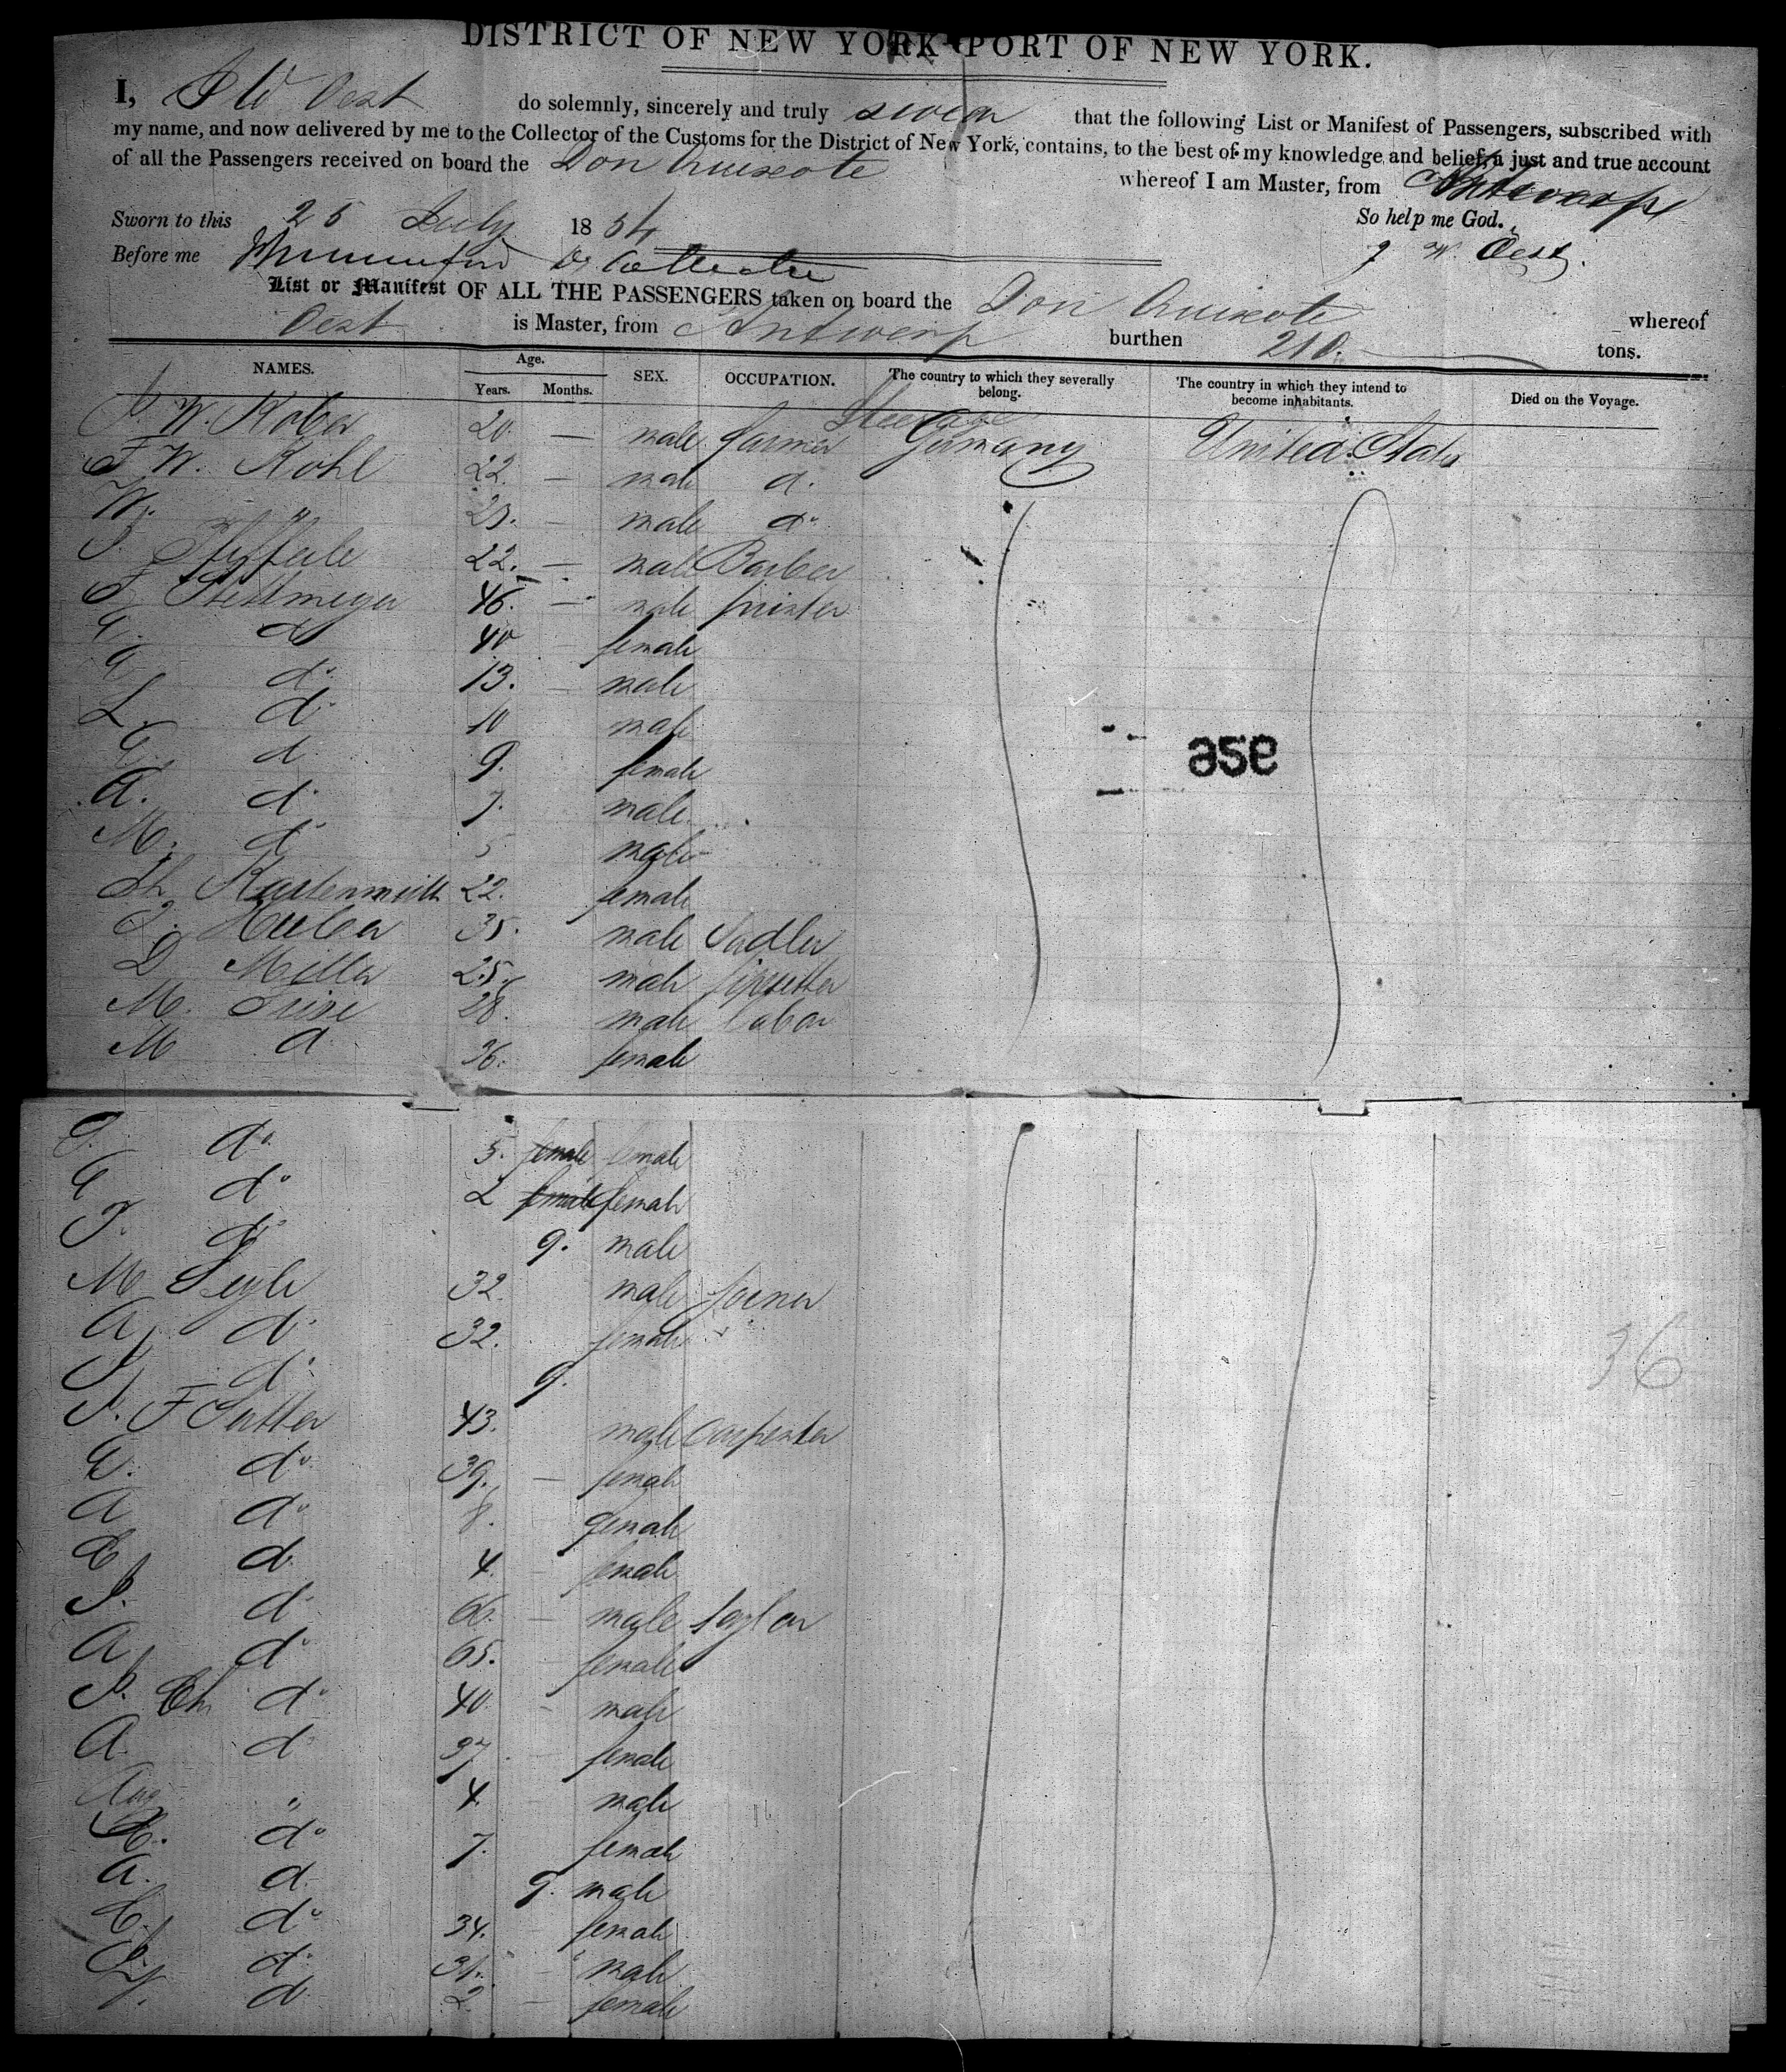 DISTRICT OF NEW YORK-PORT OF NEW YORK.
I, J W Oest do solemnly, sincerely and truly swear that the following List or Manifest of Passengers, subscribed with
my name, and now delivered by me to the Collector of the Customs for the District of New York, contains, to the best of my knowledge and belief, a just and true account
of all the Passengers received on board the Don Quixote whereof I am Master, from Antwerp
Sworn to this 25 July 1854 So help me God.
Before me D Collector J W Oest.
List or Manifest OF ALL THE PASSENGERS taken on board the Don Quixote whereof
Oest is Master, from Antwerp burthen 210. tons.
NAMES. Age. Years. Months. SEX. OCCUPATION. The country to which they severally belong. The country in which they intend to become inhabitants. Died on the Voyage.
Steerage
J. W. Kober 20. — male farmer Germany United States
F W. Kohl 22. — male d.
W. " 23. — male do
J. 22. — male Barber
F 46. — male printer
C. d 40 female
C do 13. — male
L. do 10 male
C. d 9. female
A. do 7. male
M. do 5 male
22. female
J. Huber 35. male Sadler
D Miller 25. male
M. 28. male labor
M d 36. female
J. do 5. female female
C do 2 female female
J. do 9. male
M Seyle 32. male joener
A do 32. female
J do 9.
J. F Sutter 43. male carpenter
E. do 39. — female
A do 8. female
C d. 4. female
J. do 66. — male taylor
A do 65. female
J. Ch do 40. - male
A. do 37. female
Aug " 4. male
do 7. female
A. d. 9. male
C. do 34. female
do 31. - male
d 2. — female
ase
36